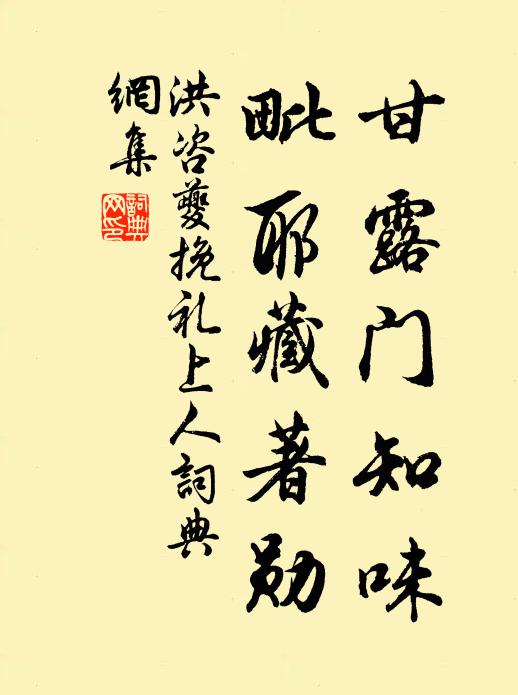 甘露门知味
毗耶藏著勋
洪咨夔挽礼上人词典
网集
词典网印